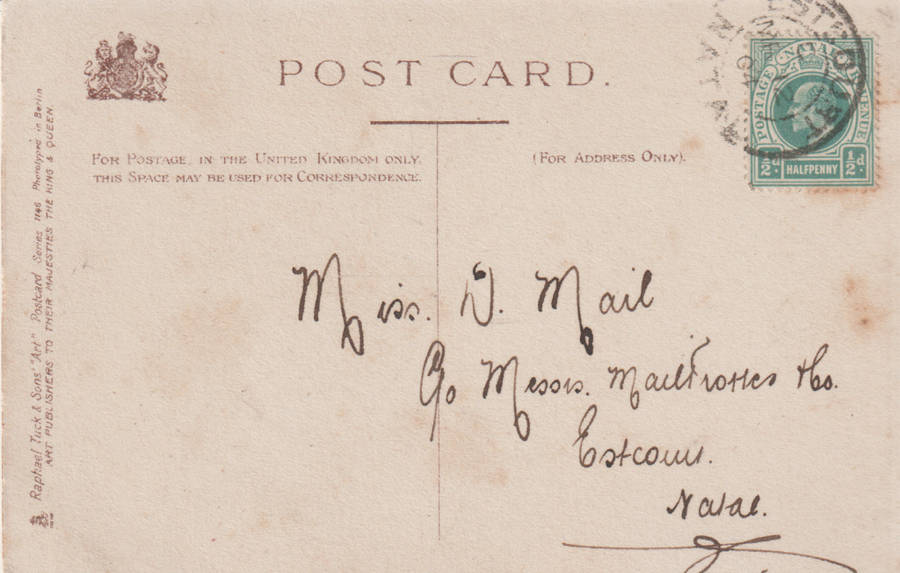 POST CARD.
FOR POSTAGE IN THE UNITED KINGDOM ONLY,
THIS SPACE MAY BE USED FOR CORRESPONDENCE.
(FOR ADDRESS ONLY).
POSTAGE NATAL REVENUE
½d. HALFPENNY ½d
NATAL
Miss. D. Mail
C/o Messrs. Mail &Co.
Estcourt.
Natal.
Raphael Tuck & Sons' "Art" Postcard Series 1146 Phototyped in Berlin
ART PUBLISHERS TO THEIR MAJESTIES THE KING & QUEEN.